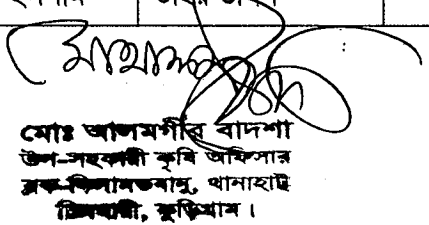 মোঃ আলমগীর বাদশা
উপ-সহকারী কৃষি অফিসার
ব্লক-কিসামতবানু, থানাহাট
চিলমারী, কুড়িগ্রাম।